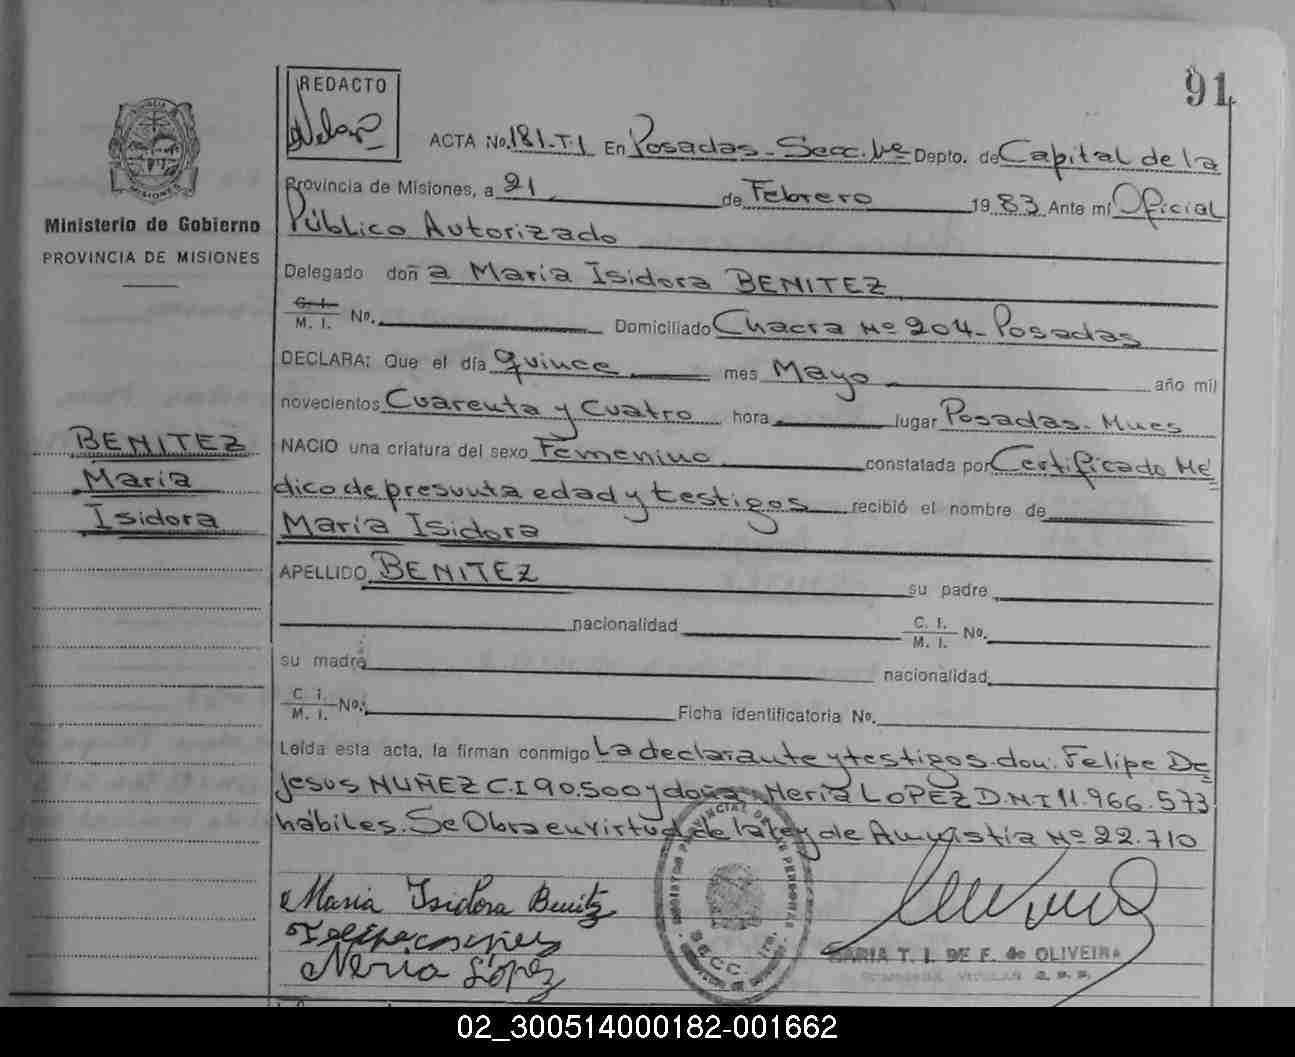 91
REDACTO
ACTA No. 181-T-1 En Posadas - Secc. 1ª Depto. de Capital de la
Provincia de Misiones, a 21 de Febrero 1983 Ante mí Oficial
Público Autorizado
Ministerio de Gobierno
PROVINCIA DE MISIONES
Delegado doña María Isidora BENITEZ
C. I.
M. I. No. Domiciliado Chacra Nº 204 - Posadas
DECLARA: Que el día quince mes Mayo año mil
novecientos Cuarenta y Cuatro hora lugar Posadas. Mnes
BENITEZ
María
Isidora
NACIO una criatura del sexo Femenino constatada por Certificado Mé
dico de presunta edad y testigos recibió el nombre de
María Isidora
APELLIDO BENITEZ su padre
nacionalidad C. I.
M. I. No.
su madre nacionalidad
C. I.
M. I. No. Ficha identificatoria No.
Leída esta acta, la firman conmigo La declarante y testigos don: Felipe De
Jesus NUÑEZ C.I 90.500 y doña Neria LOPEZ D.N.I 11.966.573
hábiles. Se Obra en virtud de la ley de Amnistía Nº 22.710
María Isidora Benitz
Neria López
SECC. 1ra.
MARIA T. I. DE F. de OLIVEIRA
02_300514000182-001662